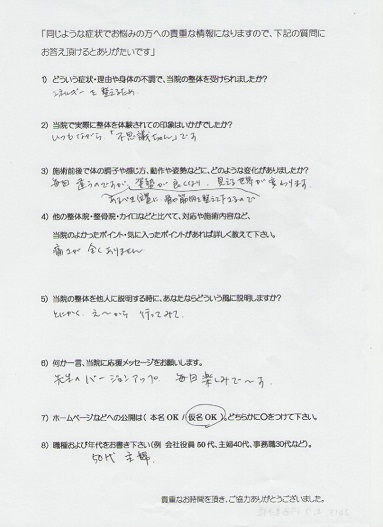 「同じような症状でお悩みの方への貴重な情報になりますので、下記の質問に
お答え頂けるとありがたいです」
1) どういう症状・理由や身体の不調で、当院の整体を受けられましたか?
エネルギーを整えるため
2) 当院で実際に整体を体験されての印象はいかがでしたか?
いつもながら「不思議ちゃん」です
3) 施術前後で体の調子や感じ方、動作や姿勢などに、どのような変化がありましたか?
毎回 違うのですが、姿勢が良くなり、見える世界が変わります。
あるべき位置に 骨や筋肉を整えて下さるので
4) 他の整体院・整骨院・カイロなどと比べて、対応や施術内容など、
当院のよかったポイント・気に入ったポイントがあれば詳しく教えて下さい。
痛さが全くありません
5) 当院の整体を他人に説明する時に、あなたならどういう風に説明しますか?
とにかく、え〜から 行ってみて。
6) 何か一言、当院に応援メッセージをお願いします。
先生のバージョンアップ 毎回楽しみで〜す。
7) ホームページなどへの公開は ( 本名 OK / 仮名 OK )、どちらかに○をつけて下さい。
8) 職種および年代をお書き下さい(例 会社役員 50 代、主婦40代、事務職30代など)。
50代 主婦
貴重なお時間を頂き、ご協力ありがとうございました。